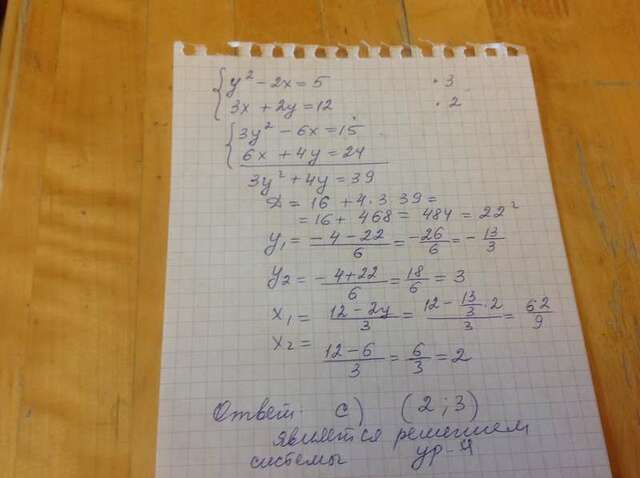 { y² - 2x = 5 · 3
3x + 2y = 12 · 2
{ 3y² - 6x = 15
6x + 4y = 24
3y² + 4y = 39
D = 16 + 4·3·39 =
= 16 + 468 = 484 = 22²
y₁ = (-4-22)/6 = -26/6 = -13/3
y₂ = -(4+22)/6 = 18/6 = 3
x₁ = (12-2y)/3 = (12 - 13/3 · 2)/3 = 62/9
x₂ = (12-6)/3 = 6/3 = 2
Ответ. c) (2;3)
является решением
системы ур-й